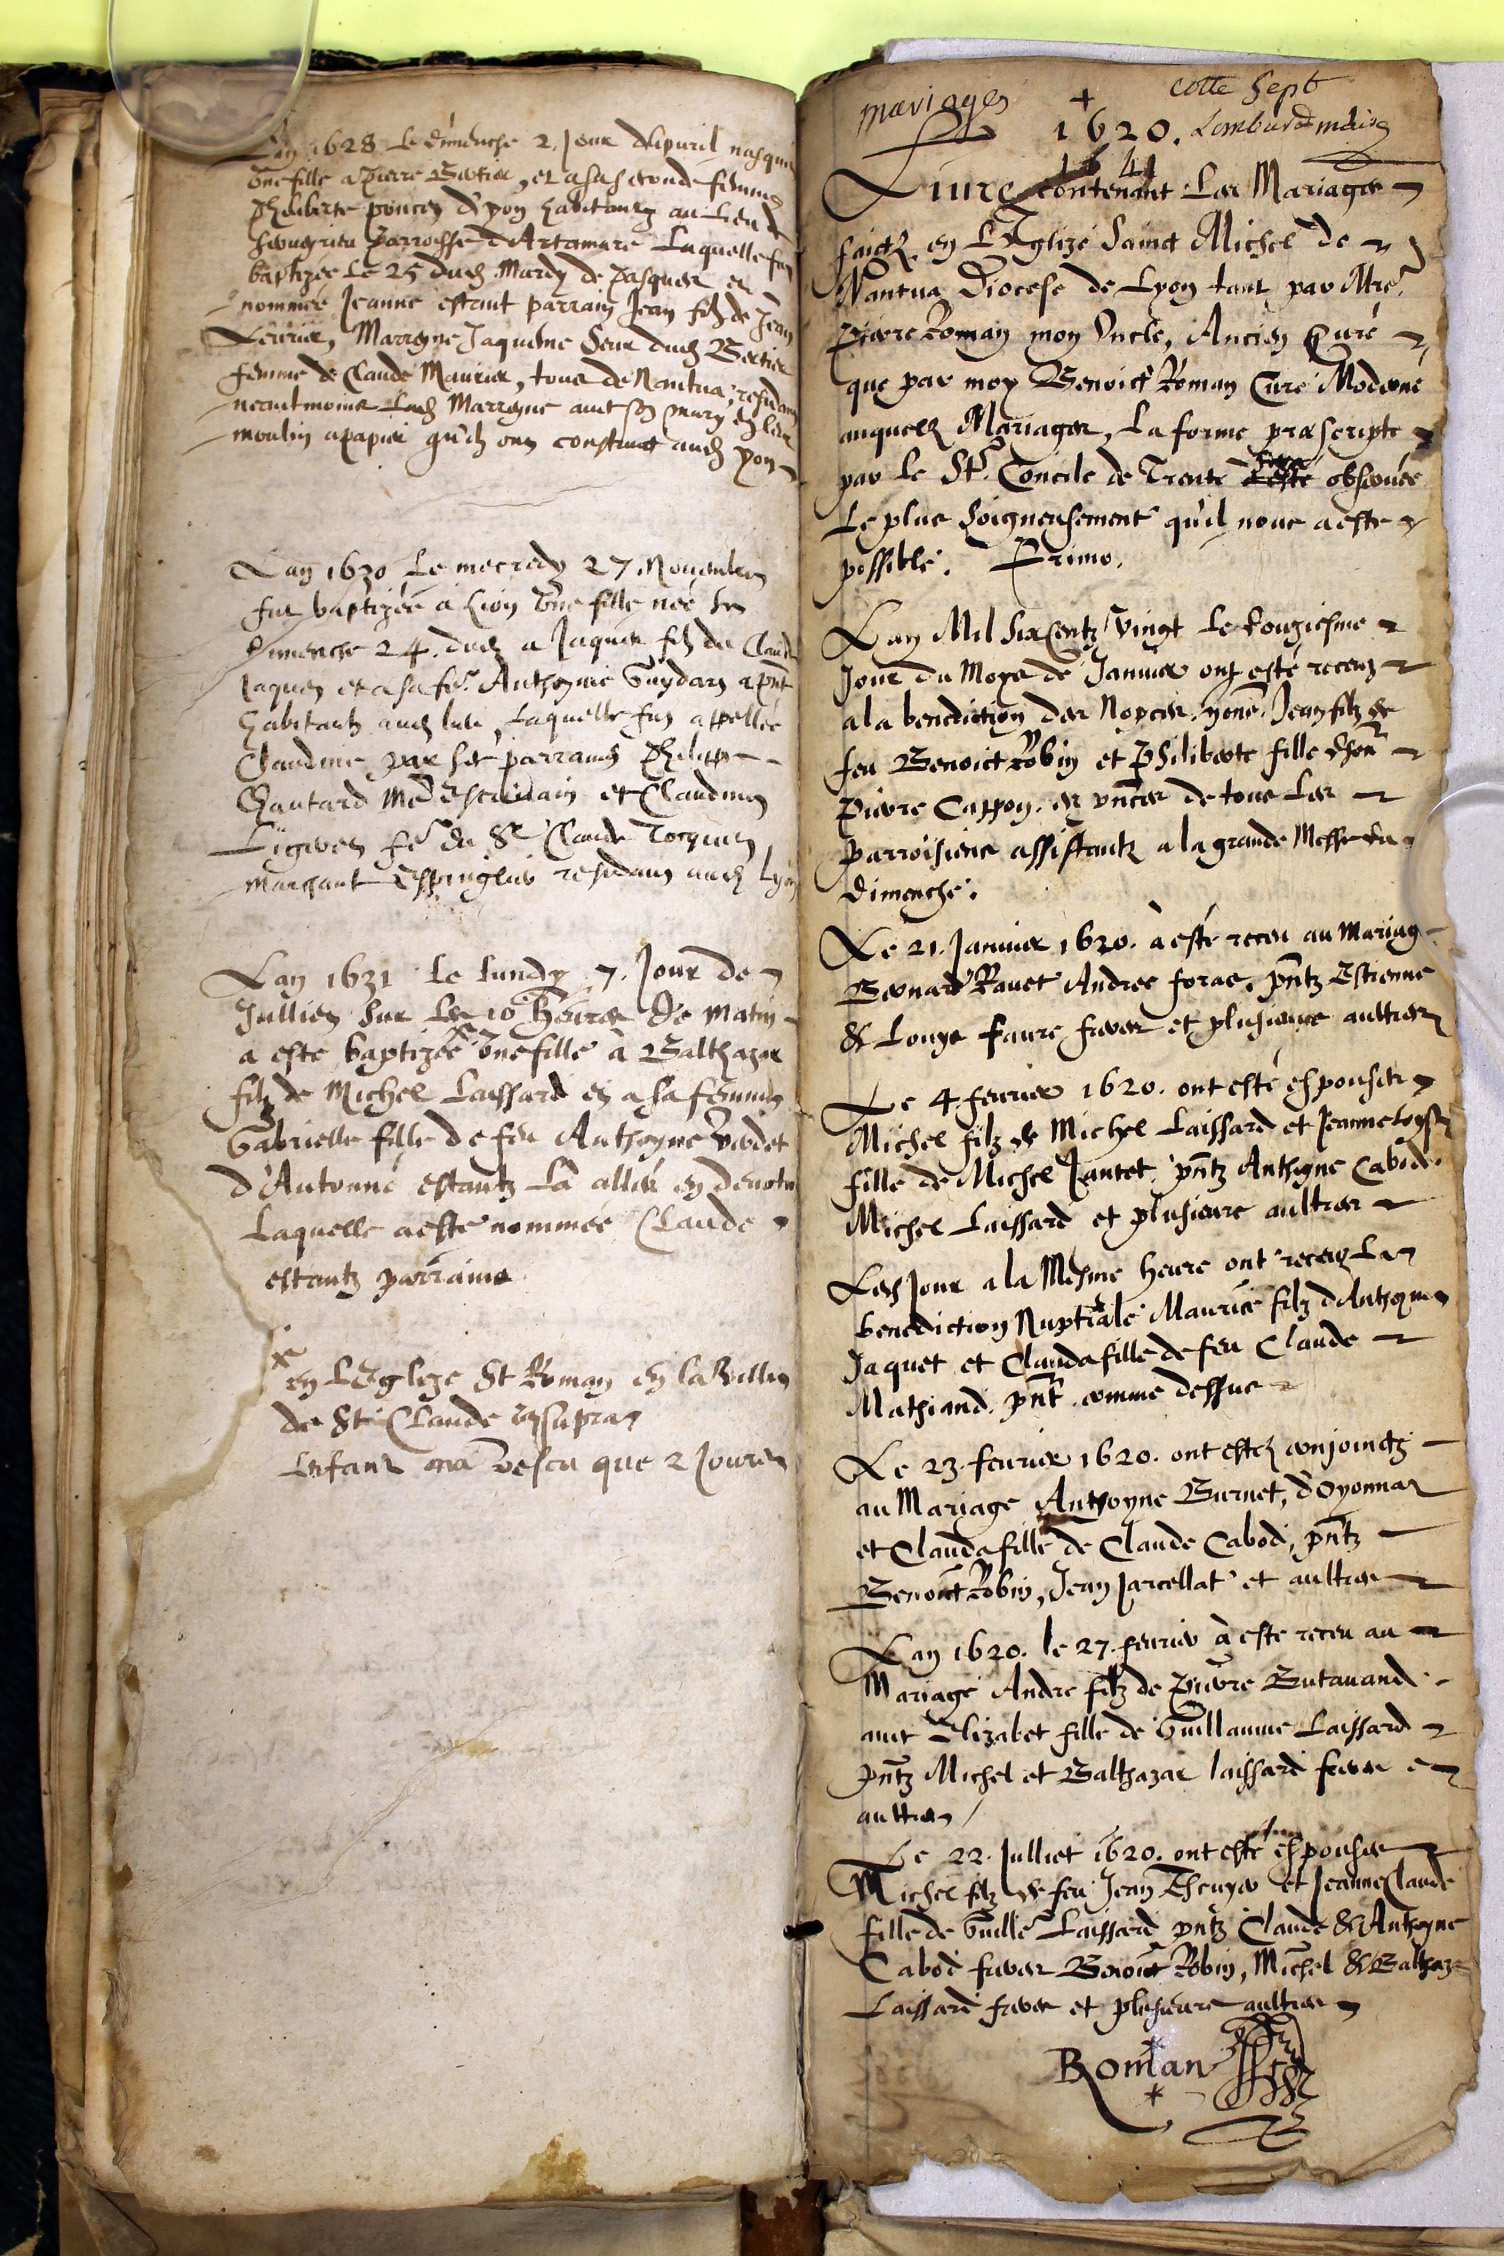 Lan 1628 Le dimenche 2. Jour dapuril nasquit
vne fille a Pierre Bertier, et a sa seconde femme
Philiberte poncet d'yon habitantz au lieu de
parroisse d'Artamare Laquelle fut
baptizée Le 25 dud. Mardy de pasques et
nommée Jeanne estant parrain Jean filz de Jean
Marreyne Jaquême seur dud. Bertier
femme de Claude Maurier, tous de Nantua, residant
neantmoins Lad. Marreyne auec son mary en leur
moulin a papier qu'ilz ont construit aud. yon
Lan 1630 Le mecredy 27 Nouembre
fut baptizée a Lion vne fille née le
dimenche 24. dud. a Jaques filz de Claude
Jaquet et a sa fe. Anthoyne Guydard a pnt
habitantz aud. lieu, Laquelle fut appellée
Claudine par ses parrains Philippe
Chautard Me Escriuain et Claudine
fe. du Sr. Claude Tocquet
marchant Espinglier residant aud. Lyon
Lan 1631 Le lundy 7. Jour de
Jullien sur Les 10 heures de matin
a este baptizée x vne fille à Balthazar
filz de Michel Laissard et a sa femme
Gabrielle fille de feu Anthoyne
d'Antonne estantz La alléz en deuotion
Laquelle a este nommée Claude
estantz parrains
x
en L'Eglize St Roman en la ville
de St. Claude vt supra
Lenfant na vescu que 2 Jours
mariages + cotte Sept
1620. Lombard maire
1641
Liure contenant Les Mariages
faictz en L'Eglize Sainct Michel de
Nantua Diocese de Lyon tant par Mre.
Pierre Roman mon Vncle, Ancien Curé
que par moy Benoict Roman Curé Moderne
ausquelz Mariages, La forme præscripte
par Le St. Concile de Trente sera a esté obseruée
Le plus soigneusement qu'il nous a este
possible. Primo.
Lan Mil six Centz vingt Le douziesme
Jour du Moys de Januier ont esté receuz
a la benediction des Nopces, hone. Jean filz de
feu Benoict Robin et Philiberte fille d'honr.
Pierre Cappon. en pnces de tous Les
parroisiens assistantz a la grande Messe du
dimenche.
Le 21. Januier 1620. à esté receu au Mariage
Bernard Rauet Andree foras, pntz Estienne
& Louys faure freres et plusieurs aultres
Le 4 feurier 1620. ont esté espousés
Michel filz de Michel Laissard et Jeanne
fille de Michel Jantet. pntz Anthoyne Cabod.
Michel Laissard et plusieurs aultres
Led. Jour a la Mesme heure ont receuz La
benediction Nuptiale Maurice filz d'Anthoyne
Jaquet et Clauda fille de feu Claude
Mathiand. pnt. comme dessus
Le 23. feurier 1620. ont estéz conjoinctz
au Mariage Anthoyne Burnet, d'Oyonnax
et Clauda fille de Claude Cabod, pntz
Benoict Robin, Jean Jarcellat et aultres
Lan 1620. le 27. feurier à este receu au
Mariage Andre filz de Pierre Butauand
auec Elizabet fille de Guillaume Laissard
pntz Michel et Balthazar laissard freres et
aultres
Le 22. Julliet 1620. ont esté espouses
Michel filz de feu Jean et Jeanne Claude
fille de Guille. Laissard, pntz Claude & Anthoyne
Cabod freres Benoict Robin, Michel & Balthazar
Laissard freres et plusieurs aultres
Roman